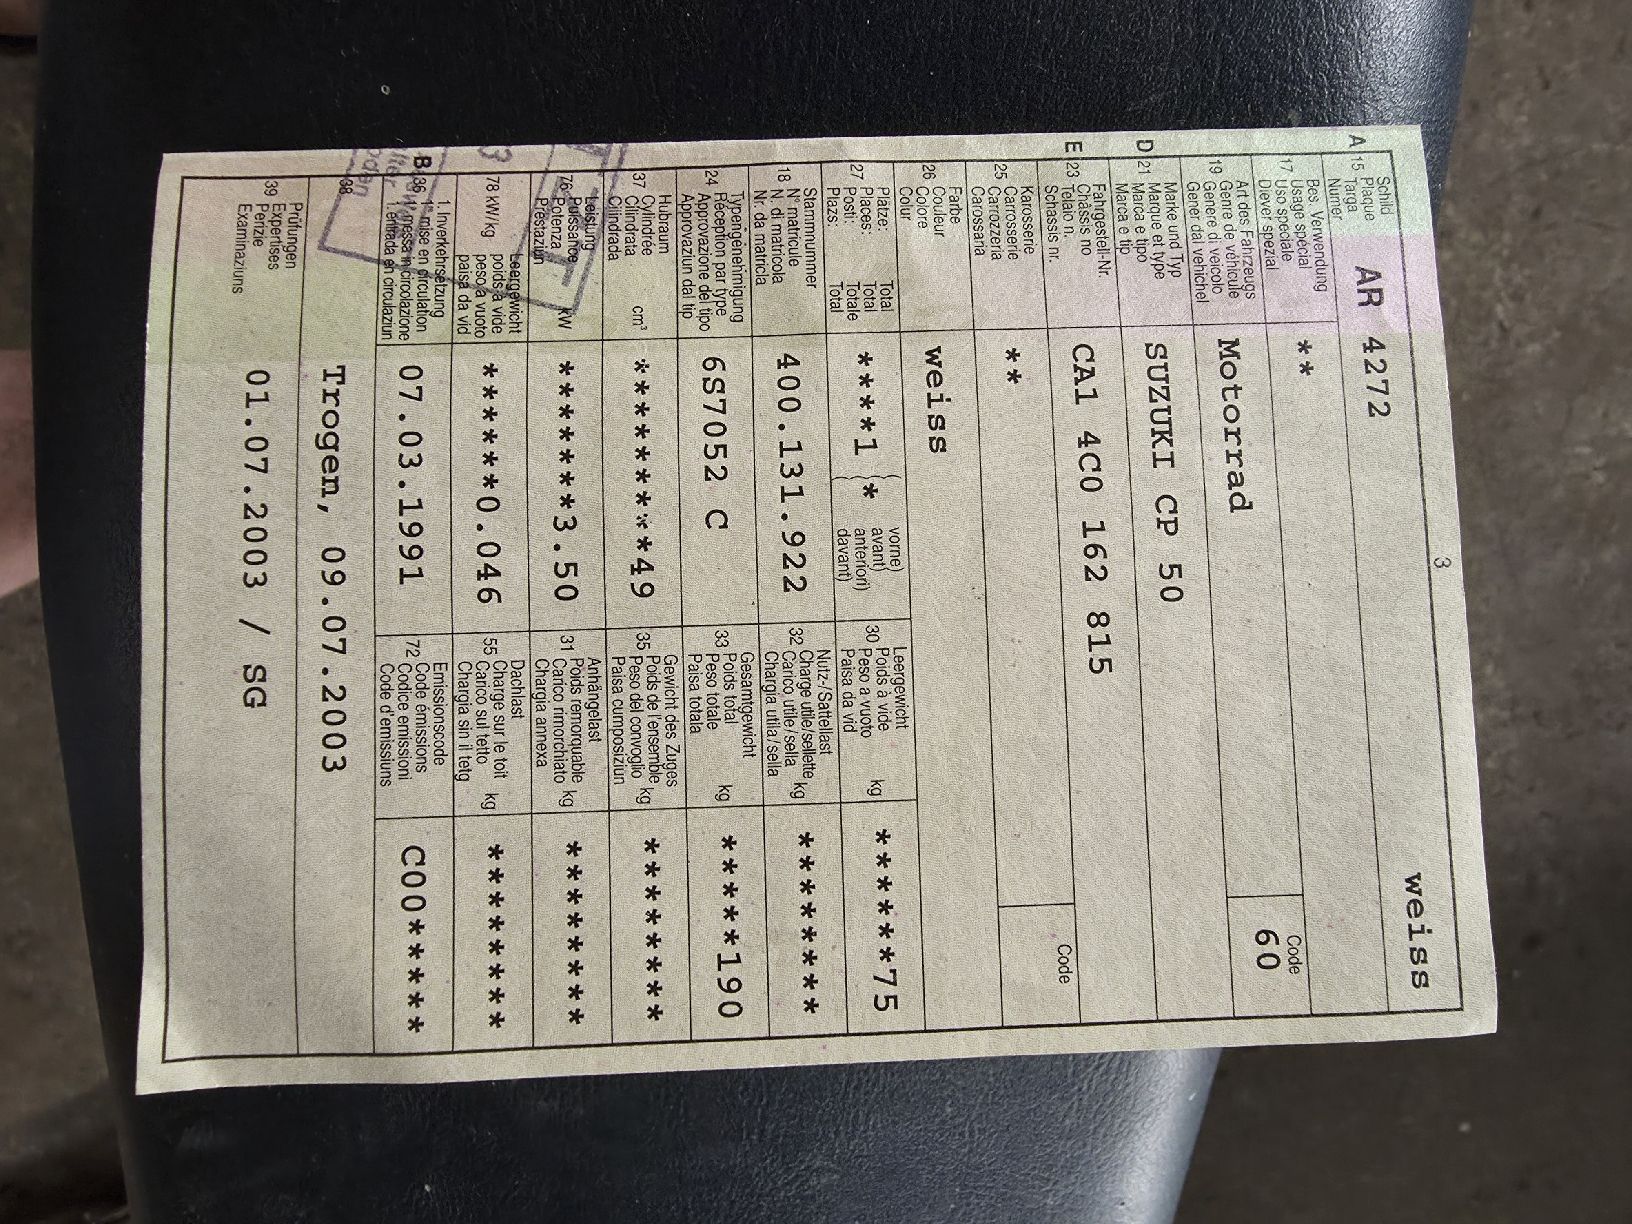 3
weiss
Schild
A 15 Plaque
Targa
Numer
AR 4272
Bes. Verwendung
17 Usage spécial
Uso speciale
Diever spezial
**
Art des Fahrzeugs
19 Genre de véhicule
Genere di veicolo
Gener dal vehichel
Motorrad
Code
60
Marke und Typ
D 21 Marque et type
Marca e tipo
Marca e tip
SUZUKI CP 50
Fahrgestell-Nr.
E 23 Châssis no
Telaio n.
Schassis nr.
CA1 4C0 162 815
Karosserie
25 Carrosserie
Carrozzeria
Carossaria
**
Code
Farbe
26 Couleur
Colore
Colur
weiss
Plätze: Total
27 Places: Total
Posti: Totale
Plazs: Total
****1 (*
vorne)
avant)
anteriori)
davant)
Leergewicht
30 Poids à vide
Peso a vuoto
Paisa da vid
kg
******75
Stammnummer
18 N° matricule
N. di matricola
Nr. da matricla
400.131.922
Nutz-/Sattellast
32 Charge utile/sellette
Carico utile/sella
Chargia utila/sella
kg
********
Typengenehmigung
24 Réception par type
Approvazione del tipo
Approvaziun dal tip
6S7052 C
Gesamtgewicht
33 Poids total
Peso totale
Paisa totala
kg
*****190
Hubraum
37 Cylindrée
Cilindrata
Cilindrada
cm³
*********49
Gewicht des Zuges
35 Poids de l'ensemble
Peso del convoglio
Paisa cumposiziun
kg
********
Leistung
76 Puissance
Potenza
Prestaziun
kW
*******3.50
Anhängelast
31 Poids remorquable
Carico rimorchiato
Chargia annexa
kg
********
78 kW/kg
Leergewicht
poids à vide
peso a vuoto
paisa da vid
******0.046
Dachlast
55 Charge sur le toit
Carico sul tetto
Chargia sin il tetg
kg
********
1. Inverkehrsetzung
B 36 1re mise en circulation
1. messa in circolazione
1. entrada en circulaziun
07.03.1991
Emissionscode
72 Code émissions
Codice emissioni
Code d'emissiuns
C00*****
38
Trogen, 09.07.2003
Prüfungen
39 Expertises
Perizie
Examinaziuns
01.07.2003 / SG
3